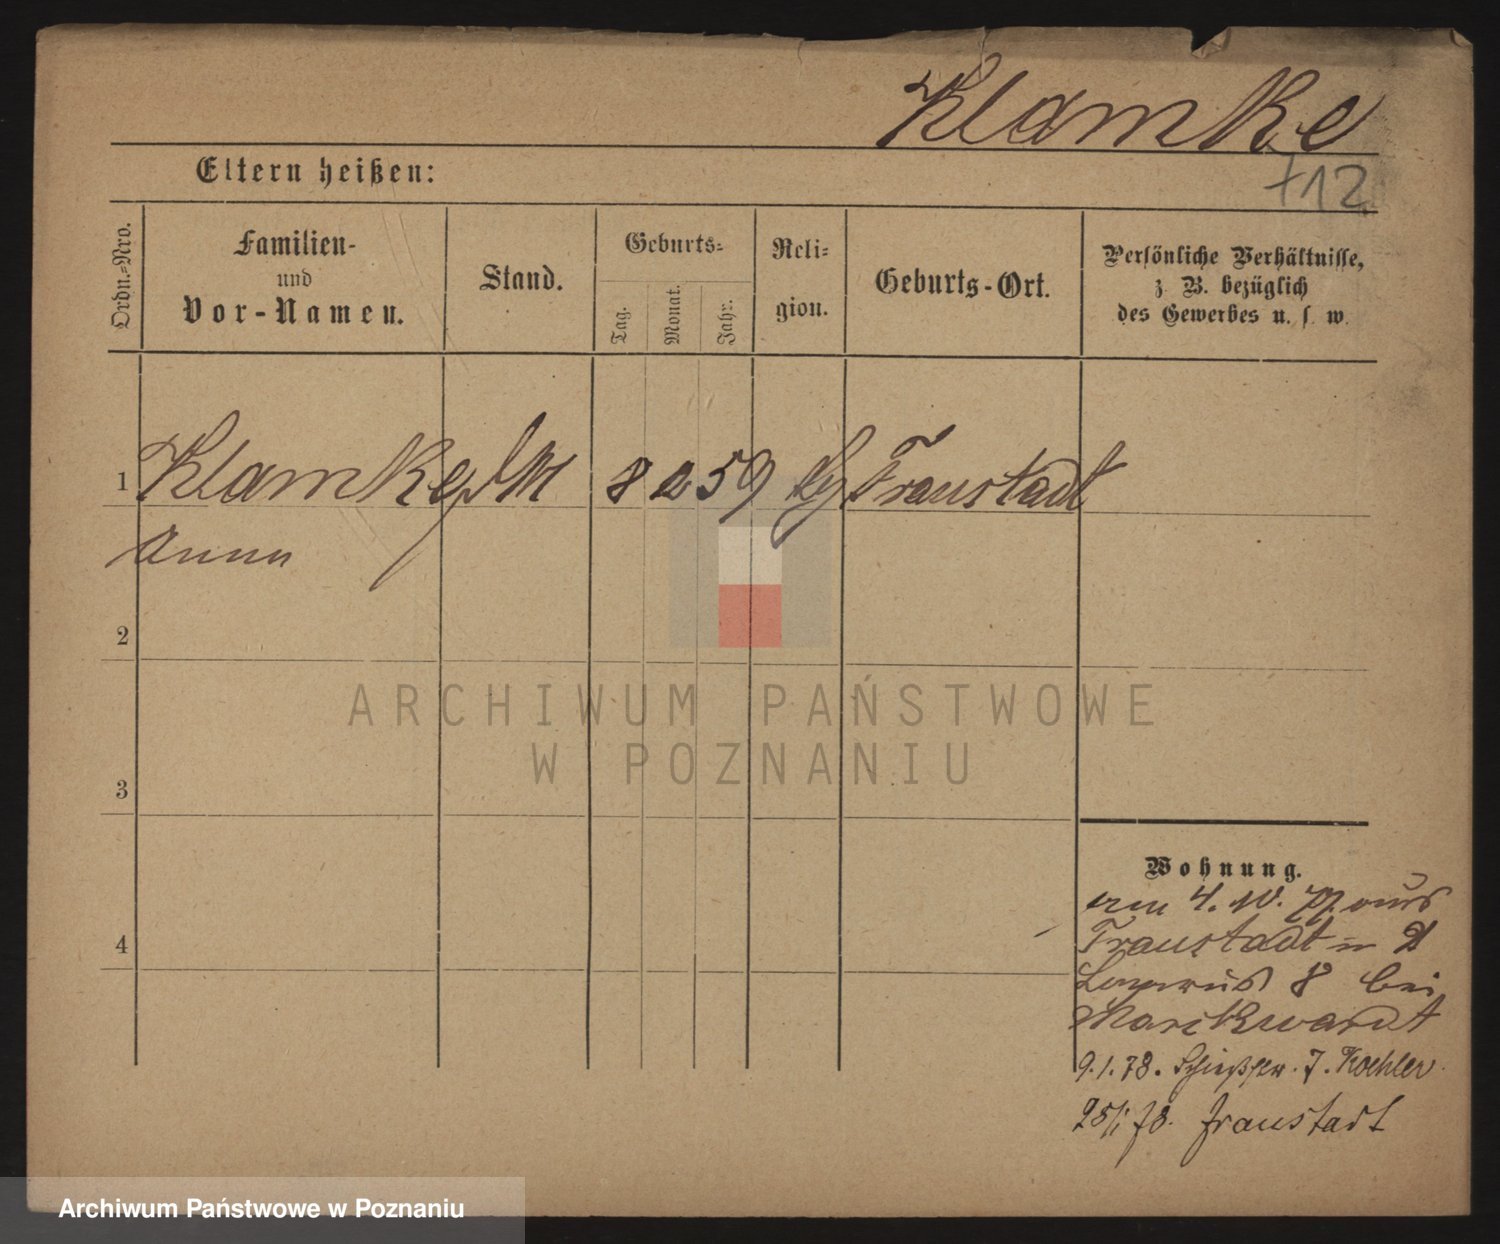 Klamke
712
Eltern heißen:
Ordn.=Nro.
Familien-
und
Vor-Namen.
Stand.
Geburts=
Tag.
Monat.
Jahr.
Reli=
gion.
Geburts-Ort.
Persönliche Verhältnisse,
z. B. bezüglich
des Gewerbes u. s. w.
1 Klamke 8 2 59 Fraustadt
Anna
2
3
4
ARCHIWUM PAŃSTWOWE
W POZNANIU
Wohnung.
am 4. 10. 77 aus
Fraustadt
8 bei
Marckwardt
9.1.78. 7. Koehler.
25/1 78. Fraustadt
Archiwum Państwowe w Poznaniu